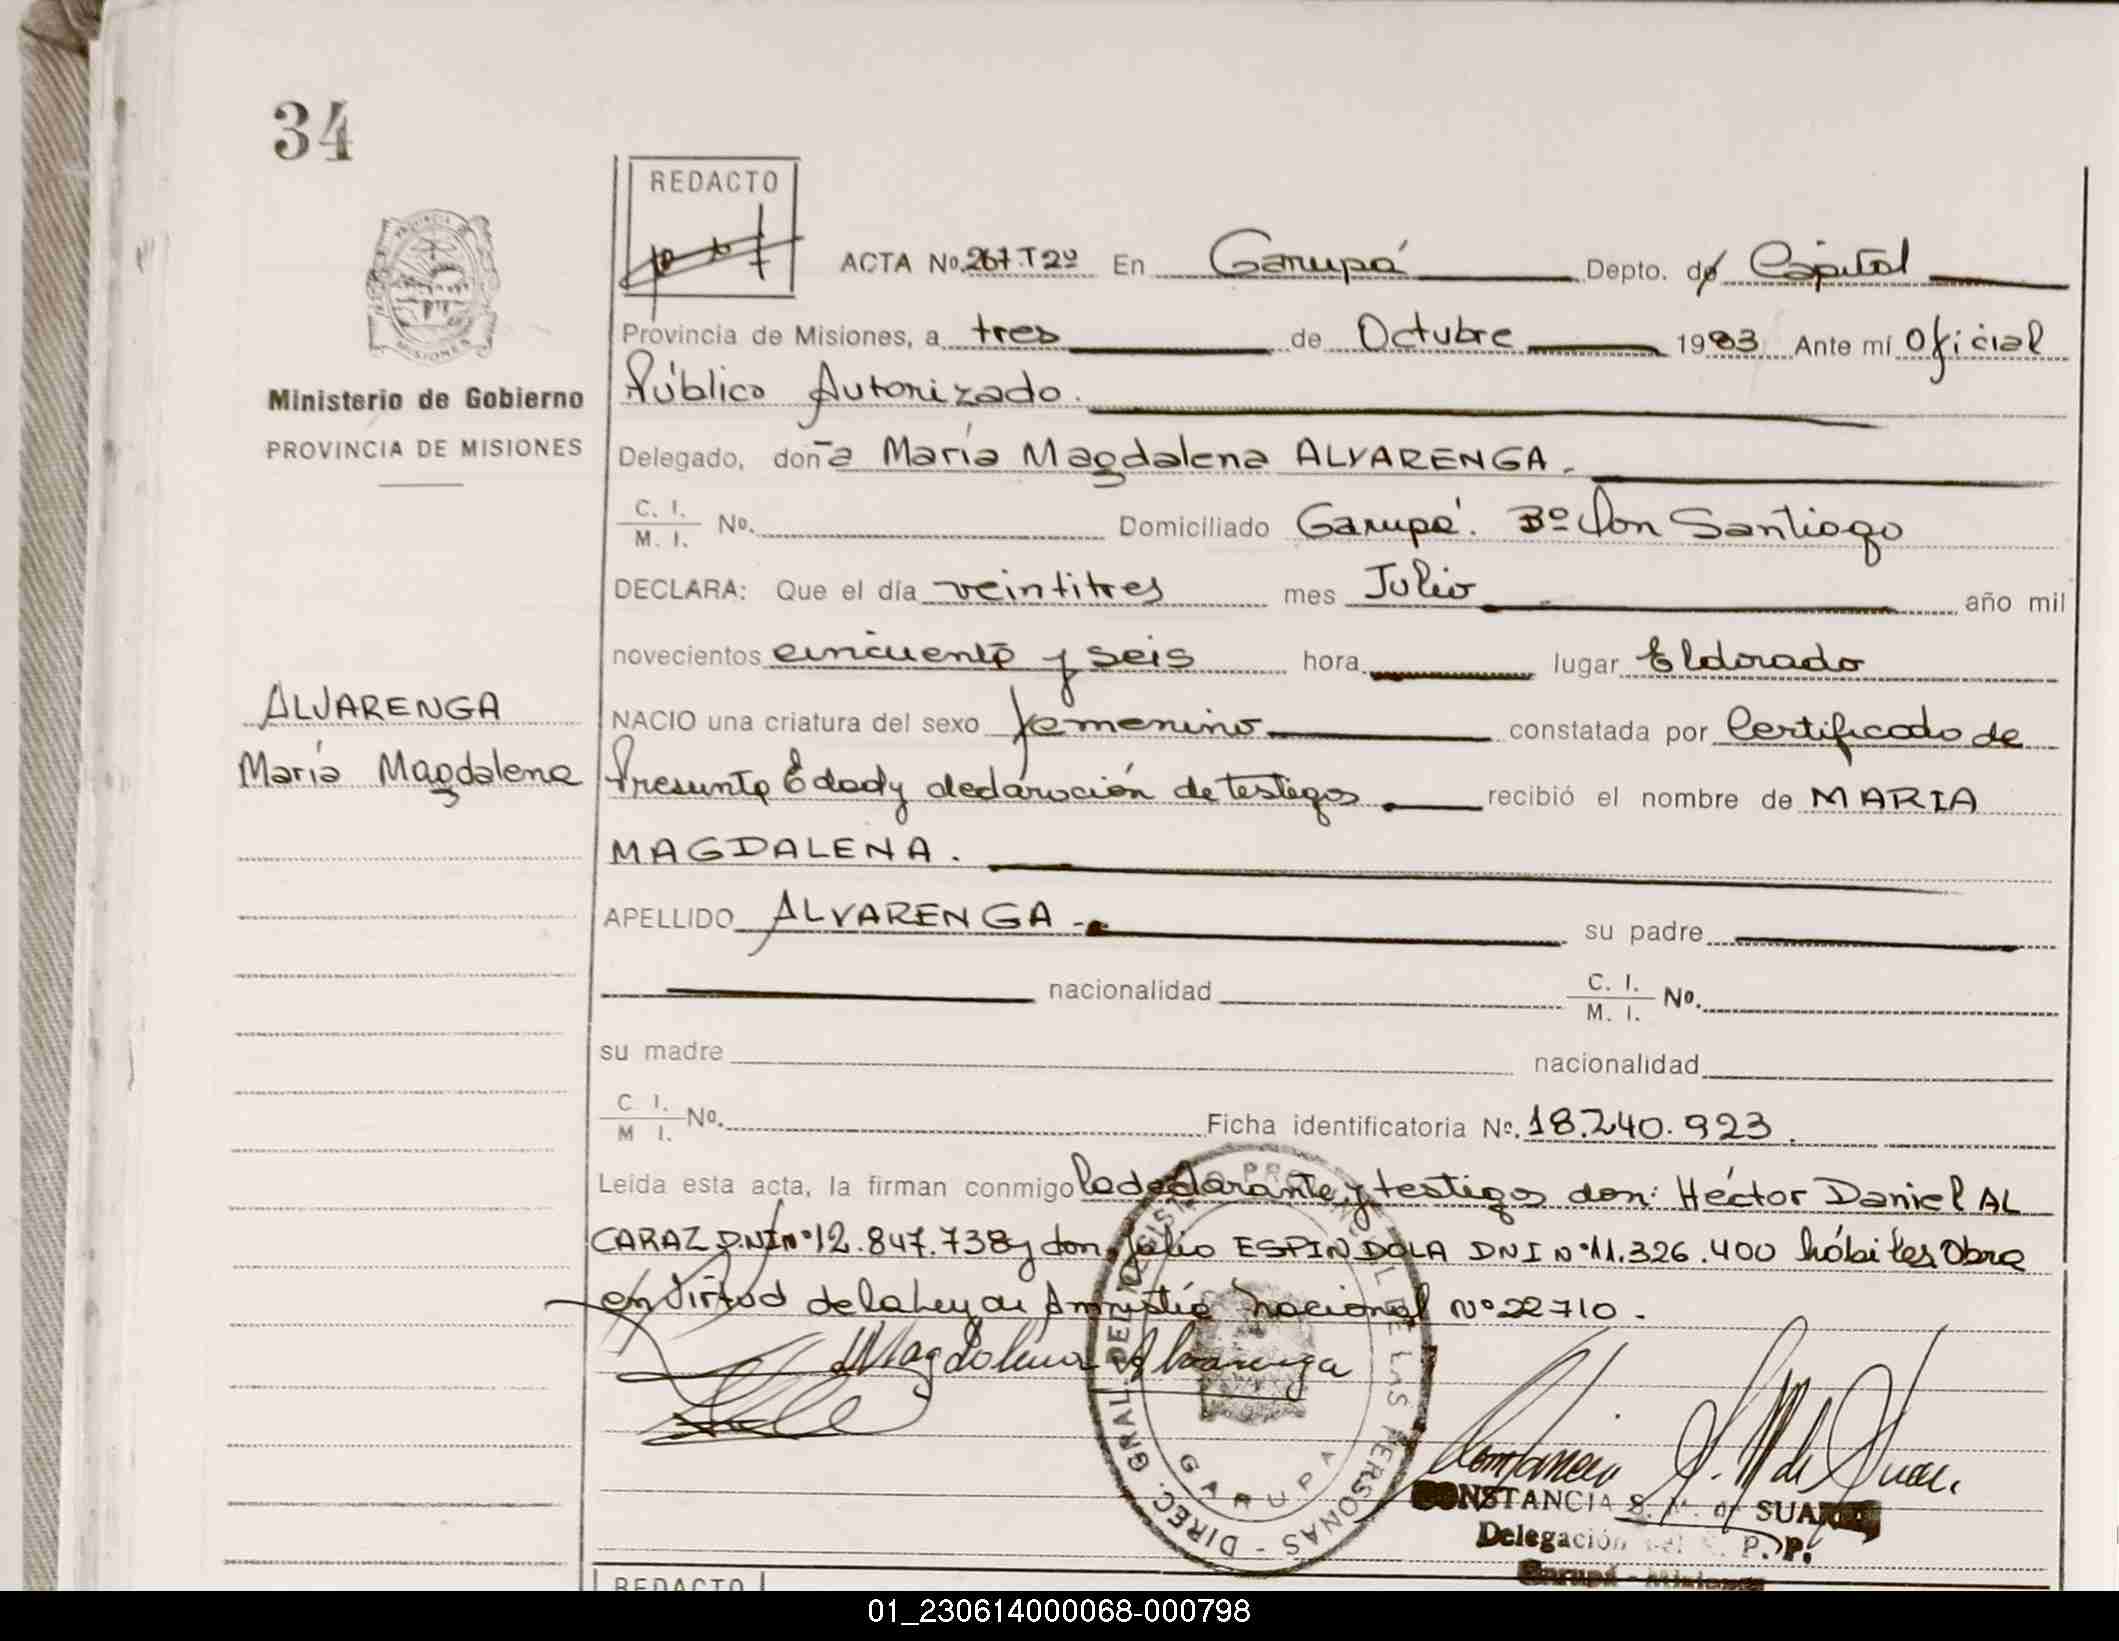 34
REDACTO
ACTA No. 267.T2º En Garupá Depto. de Capital
Provincia de Misiones, a tres de Octubre 1983 Ante mí Oficial
Público Autorizado.
Ministerio de Gobierno
PROVINCIA DE MISIONES
Delegado, doña María Magdalena ALVARENGA.
C. I.
M. I. No. Domiciliado Garupá. Bº Don Santiago
DECLARA: Que el día veintitres mes Julio año mil
novecientos cincuenta y seis hora lugar Eldorado
ALVARENGA
María Magdalena
NACIO una criatura del sexo femenino constatada por Certificado de
Presunta Edad y declaración de testigos recibió el nombre de MARIA
MAGDALENA.
APELLIDO ALVARENGA.- su padre
nacionalidad C. I.
M. I. No.
su madre nacionalidad
C. I.
M. I. No. Ficha identificatoria No. 18.240.923.
Leída esta acta, la firman conmigo la declarante y testigos don: Héctor Daniel AL
CARAZ DNI nº 12.847.738 y don Julio ESPINDOLA DNI Nº 11.326.400 hábiles Obra
en Virtud de la Ley de Amnistía Nacional Nº 22710.-
Magdalena Alvarenga
DIREC. GRAL. DEL REGISTRO PROVINCIAL DE LAS PERSONAS -
GARUPA
CONSTANCIA S. M. de SUAREZ
Delegación del R. P. P.
Garupá - Misiones
REDACTO
01_230614000068-000798